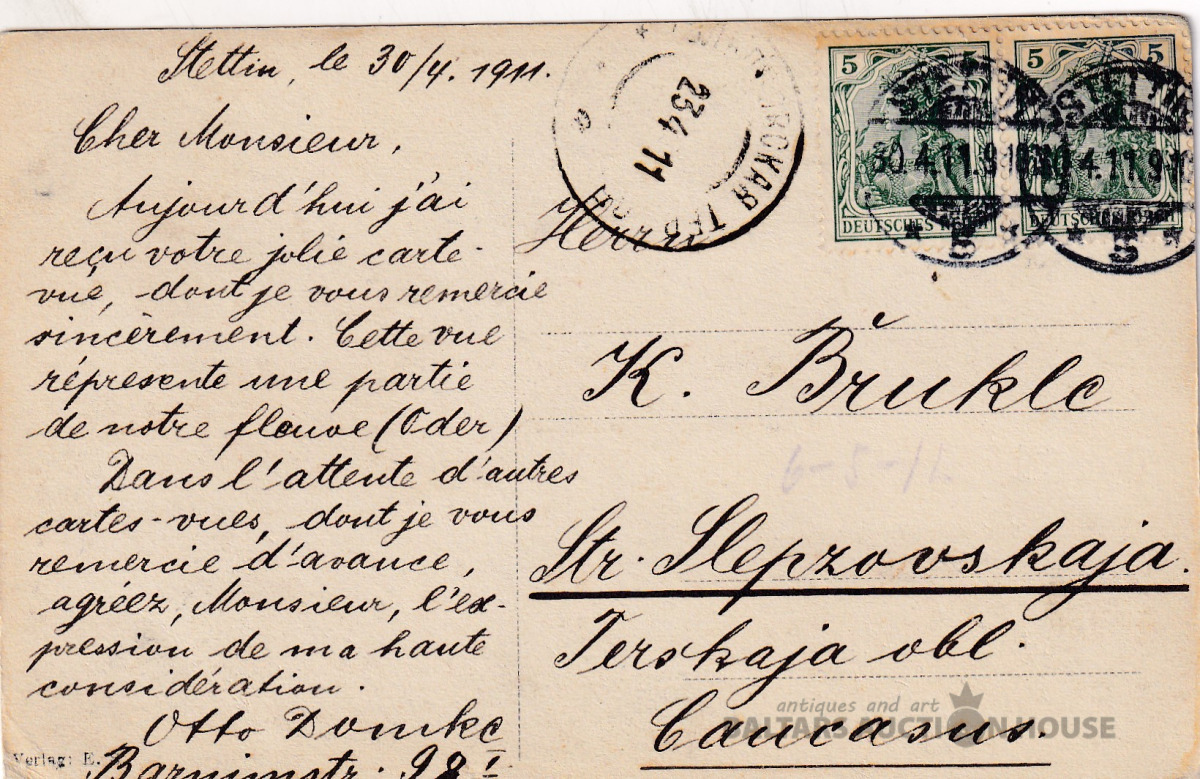 Stettin, le 30/4. 1911.
Cher Monsieur,
Aujourd'hui j'ai
reçu votre jolie carte-
vue, dont je vous remercie
sincèrement. Cette vue
réprésente une partie
de notre fleuve (Oder)
Dans l'attente d'autres
cartes-vues, dont je vous
remercie d'avance,
agréez, Monsieur, l'ex-
pression de ma haute
considération.
Otto Domke
Barnimstr. 98 I
Verlag: E.
23 4 11
5 5
DEUTSCHES REICH
DEUTSCHES REICH
STETTIN
30.4.11.9-10
5
STETTIN
30.4.11.9-10
5
Herrn
K. Břukle
6-5-12
Str. Slepzovskaja.
Terskaja obl.
Caucasus.
antiques and art
BALTARS AUCTION HOUSE